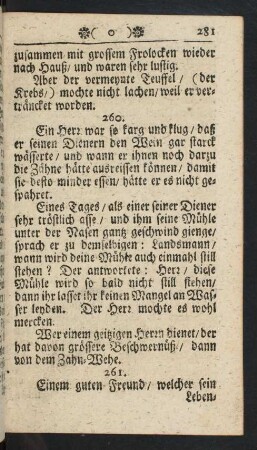 ❋( o )❋ 281
zusammen mit grossem Frolocken wieder
nach Hauß/ und waren sehr lustig.
Aber der vermeynte Teuffel/ (der
Krebs/) mochte nicht lachen/ weil er ver-
träncket worden.
260.
Ein Herr war so karg und klug/ daß
er seinen Dienern den Wein gar starck
wässerte/ und wann er ihnen noch darzu
die Zähne hätte ausreissen können/ damit
sie desto minder essen/ hätte er es nicht ge-
spahret.
Eines Tages/ als einer seiner Diener
sehr tröstlich asse/ und ihm seine Mühle
unter der Nasen gantz geschwind gienge-
sprach er zu demselbigen: Landsmann/
wann wird deine Mühle auch einmahl still
stehen? Der antwortete: Herr/ diese
Mühle wird so bald nicht still stehen/
dann ihr lasset ihr keinen Mangel an Was-
ser leyden. Der Herr mochte es wohl
mercken.
Wer einem geitzigen Herrn dienet/ der
hat davon grössere Beschwernüß/ dann
von dem Zahn-Wehe.
261.
Einem guten Freund/ welcher sein
Leben-